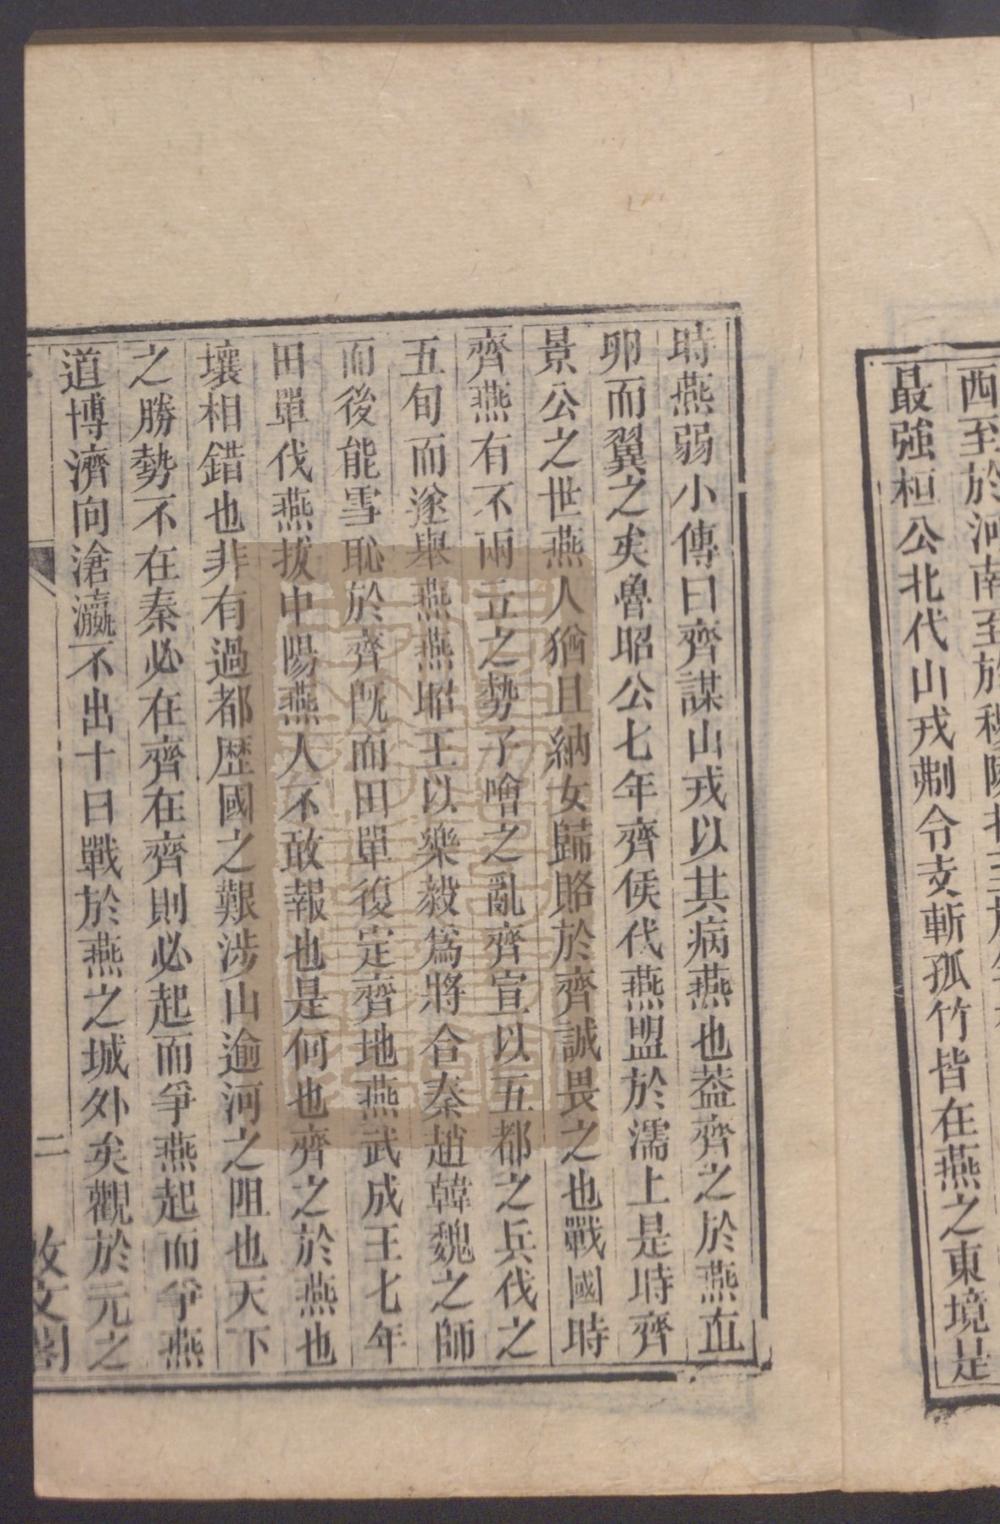 西至於河南至於穆陵
最強桓公北伐山戎剻令支斬孤竹皆在燕之東境是
時燕弱小傳曰齊謀山戎以其病燕也葢齊之於燕直
卵而翼之矣魯昭公七年齊侯伐燕盟於濡上是時齊
景公之世燕人猶且納女歸賂於齊誠畏之也戰國時
齊燕有不兩立之勢子噲之亂齊宣以五都之兵伐之
五旬而遂舉燕燕昭王以樂毅爲將合秦趙韓魏之師
而後能雪恥於齊旣而田單復定齊地燕武成王七年
田單伐燕拔中陽燕人不敢報也是何也齊之於燕也
壤相錯也非有過都歴國之艱涉山逾河之阻也天下
之勝勢不在秦必在齊在齊則必起而爭燕起而爭燕
道博濟向滄瀛不出十日戰於燕之城外矣觀於元之
二